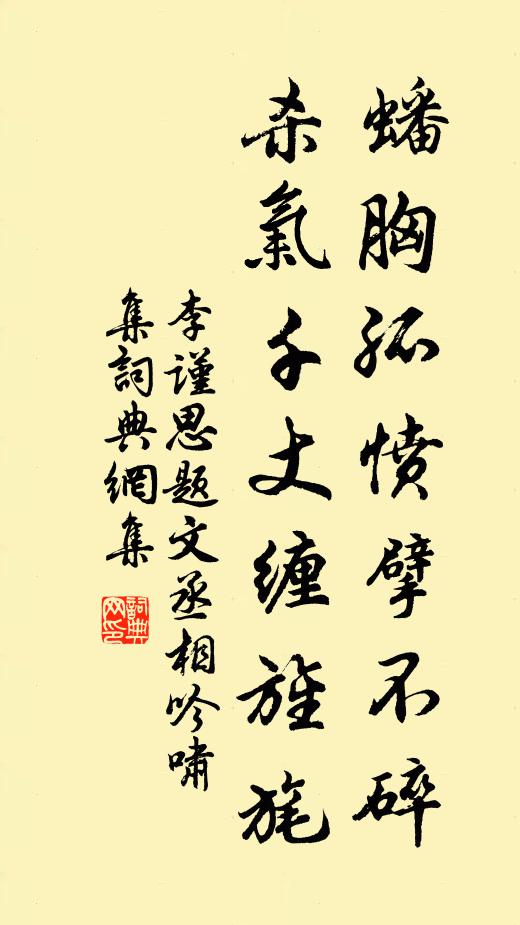 蟠胸孤憤擘不碎
杀氣千丈纏旌旄
李謹思题文丞相吟嘯
集詞典網集
詞典
网印